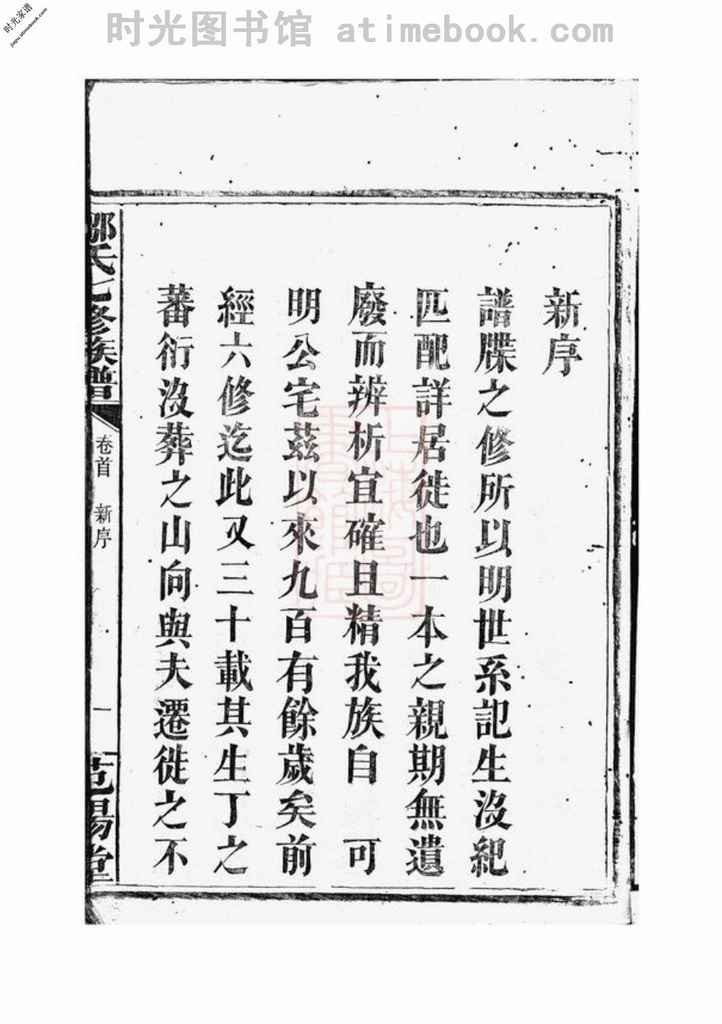 时光家谱
jiapu.atimebook.com
时光图书馆 atimebook.com
新序
譜牒之修所以明世系記生沒紀
匹配詳居徙也一本之親期無遺
廢而辨析宜確且精我族自 可
明公宅茲以來九百有餘歲矣前
經六修迄此又三十載其生丁之
蕃衍沒葬之山向與夫遷徙之不
鄒氏七修族譜
卷首 新序
一
范陽堂